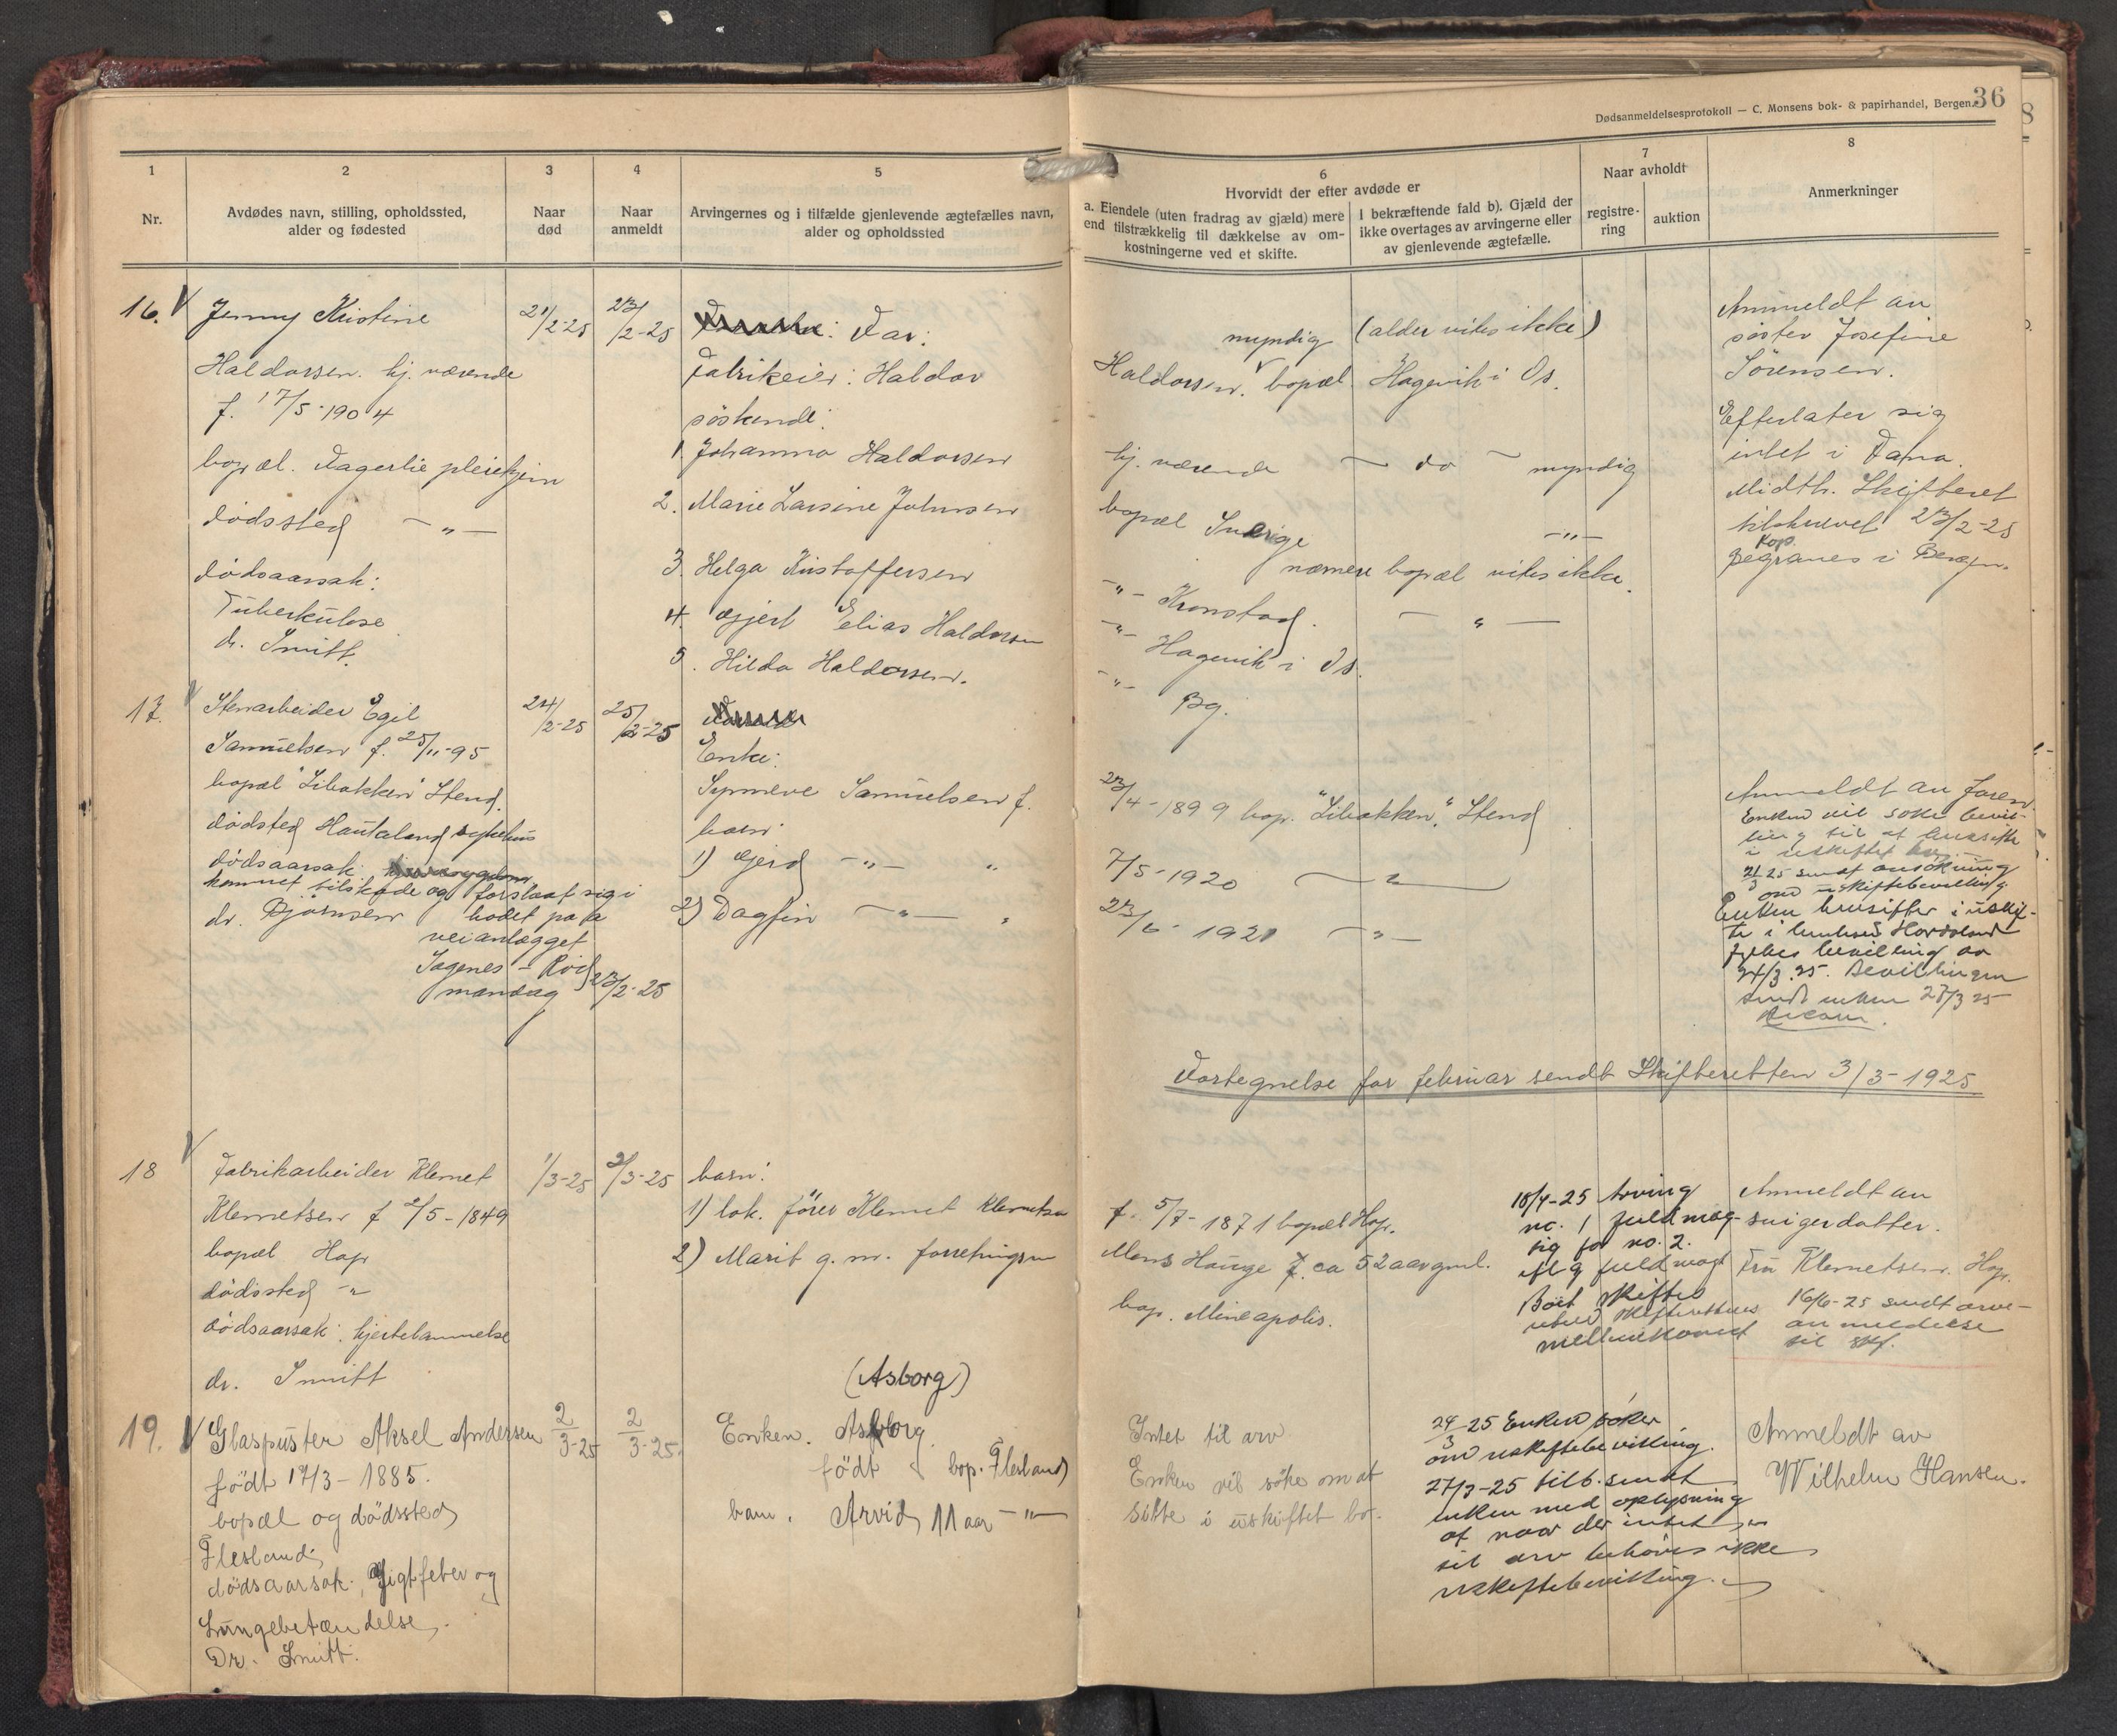 Dødsanmeldelsesprotokoll — C. Monsens bok- & papirhandel, Bergen.
36
1
Nr.
2
Avdødes navn, stilling, opholdssted,
alder og fødested
3
Naar
død
4
Naar
anmeldt
5
Arvingernes og i tilfælde gjenlevende ægtefælles navn,
alder og opholdssted
6
Hvorvidt der efter avdøde er
a. Eiendele (uten fradrag av gjæld) mere
end tilstrækkelig til dækkelse av om-
kostningerne ved et skifte.
I bekræftende fald b). Gjæld der
ikke overtages av arvingerne eller
av gjenlevende ægtefælle.
7
Naar avholdt
registre-
ring
auktion
8
Anmerkninger
16.
Jenny Kristine
Haldorsen. hj. værende
f. 17/5-1904
bopæl. Fagerlie pleiehjem
dødssted —"—
dødsaarsak:
Tuberkulose
dr. Smitt.
21/2-25
23/2-25
Far:
Fabrikeier: Haldor
søskende:
1. Johanna Haldorsen
2. Marie Larsine Johnsen
3. Helga Kristoffersen
4. Gjert Elias Haldorsen
5. Hilda Haldorsen.
myndig (alder vites ikke)
Haldorsen. bopæl Hagevik i Os.
hj. værende — do — myndig
bopæl Sverige —"—
nærmere bopæl vites ikke.
-"- Kronstad. — " —
-"- Hagevik i Os.
-"- Bg.
Anmeldt av
søster Josefine
Sørensen.
Efterlater sig
intet i Fana.
Midth. Skifteret
tilskrevet 23/2-25
Kop.
Begraves i Bergen.
17.
Stenarbeider Egil
Samuelsen f. 25/11-95
bopæl "Libakken" Stend.
dødsted Haukeland sykehus
dødsaarsak:
kommet tilskade og forslaat sig i
dr. Bjørnsen hodet paa
veianlægget
Sagenes - Rød
mandag 23/2-25
24/2-25
25/2-25
Enke:
Synneve Samuelsen f.
barn:
1) Gjerd —"— "
2) Dagfin —"— "
23/4-1899 bop. "Libakken", Stend
7/5-1920 — " —
23/6-1921 —"—
Anmeldt av faren.
Enken vil søke bevil-
ling til at hensitte
i uskiftet bo
21/3 25 sendt ansökning
om uskiftebevilling
Enken hensitter i uskif-
te i henhold Hordaland
fylkes bevilling av
24/3.25. Bevillingen
sendt enken 27/3 25
Fortegnelse for februar sendt Skifteretten 3/3-1925
18
Fabrikarbeider Klemet
Klemetsen f 2/5-1849
bopæl Hop
dødssted -"
dødsaarsak: hjertelammelse
dr. Smitt
1/3-25
2/3-25
barn:
1) lok. fører Klemet Klemetsen
2) Marit g. m. forretningsm
f. 5/7-1871 bopæl Hop.
Mons Hauge f. ca 52 aar gml.
bop. Mineapolis.
18/4-25 Arving
no. 1 fuldmæg-
tig for no. 2.
iflg fuldmagt
Boet skiftes
uten skifterettens
mellemkomst
Anmeldt av
svigerdatter.
Fru Klemetsen. Hop.
16/6-25 sendt arve-
anmeldelse
til skf.
19.
Glaspuster Aksel Andersen
født 17/3-1885.
bopæl og dødssted
Flesland
dødsaarsak: Gigtfeber og
Lungebetændelse.
Dr. Smitt.
2/3-25
2/3-25.
(Asborg)
Enken. Asborg
født bop. Flesland
barn. Arvid 11 aar —"—
Intet til arv
Enken vil søke om at
sitte i uskiftet bo.
24/3-25 Enken søker
om uskiftebevilling.
27/3-25 tilb. sendt
enken med oplysning
at naar der intet er
til arv behøves ikke
uskiftebevilling.
Anmeldt av
Wilhelm Hansen.